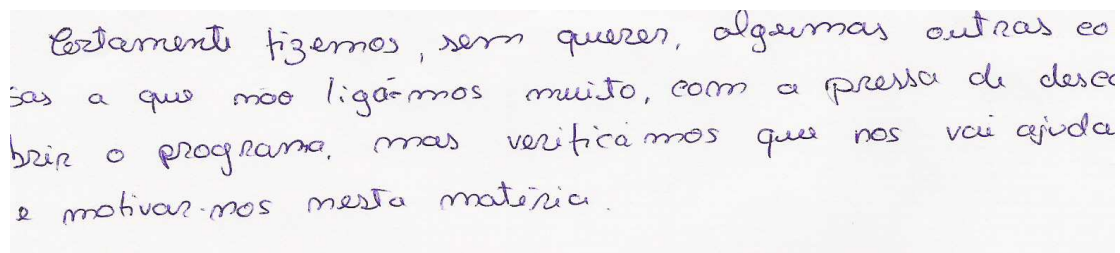 Certamente fizemos, sem querer, algumas outras co
sas a que não ligá-mos muito, com a pressa de desco
brir o programa, mas verificámos que nos vai ajuda
e motivar-nos nesta matéria.